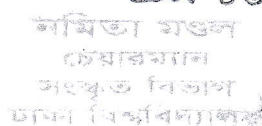 নমিতা মণ্ডল
চেয়ারম্যান
সংস্কৃত বিভাগ
ঢাকা বিশ্ববিদ্যালয়